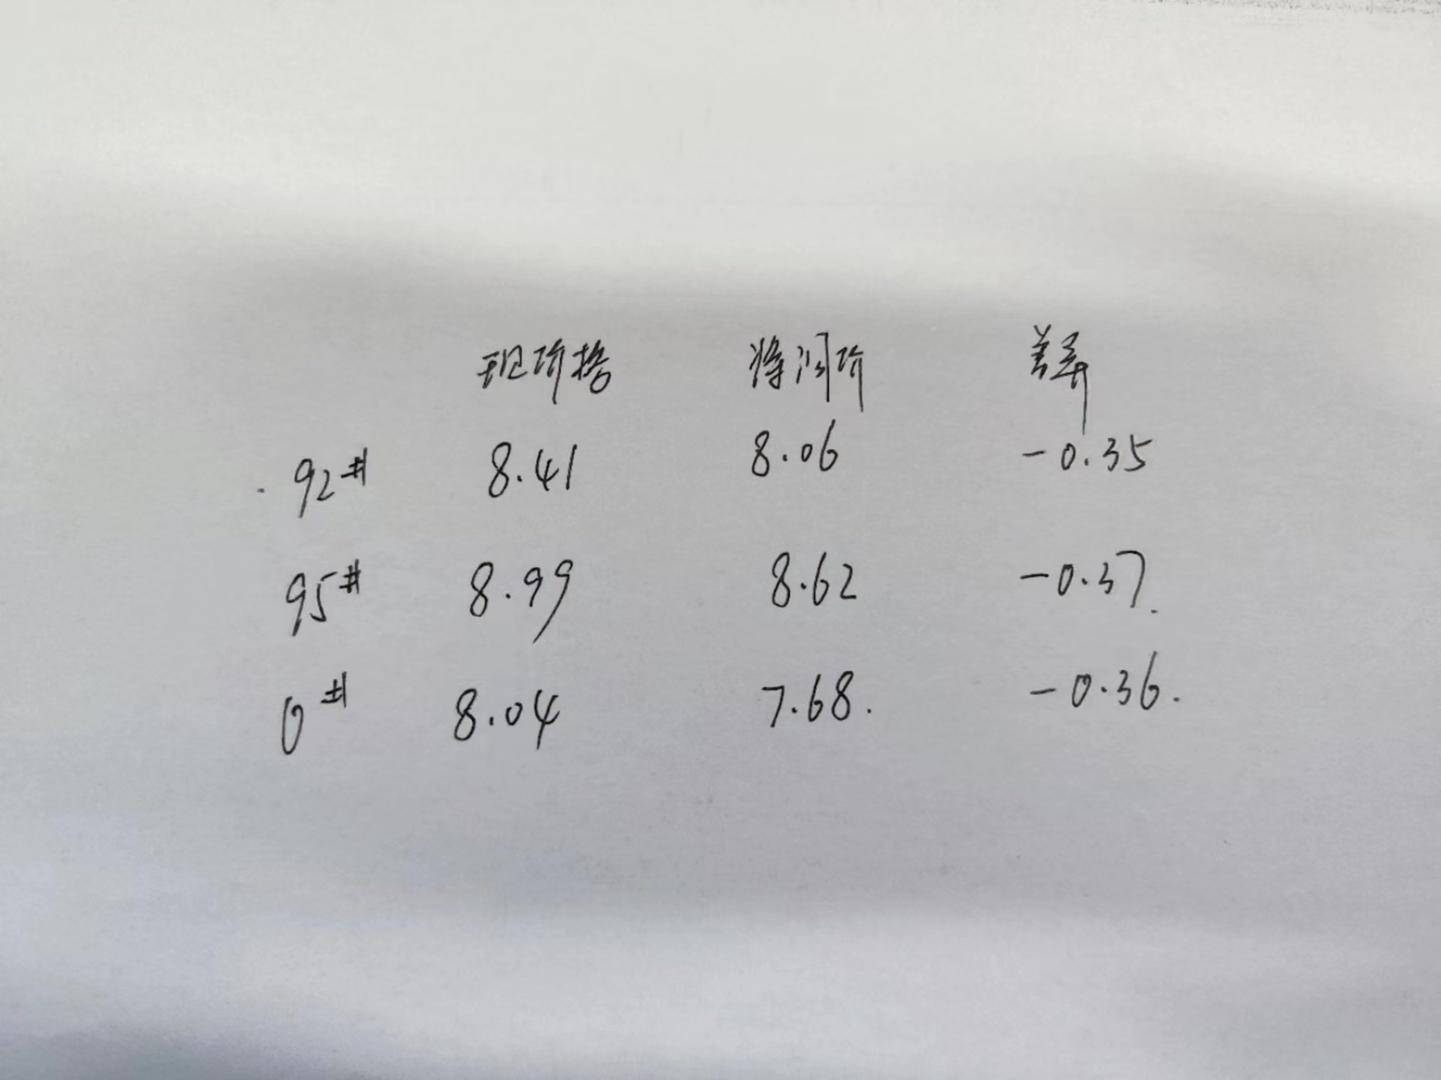 现价格 将调价 差异
92# 8.41 8.06 -0.35
95# 8.99 8.62 -0.37.
0# 8.04 7.68. -0.36.